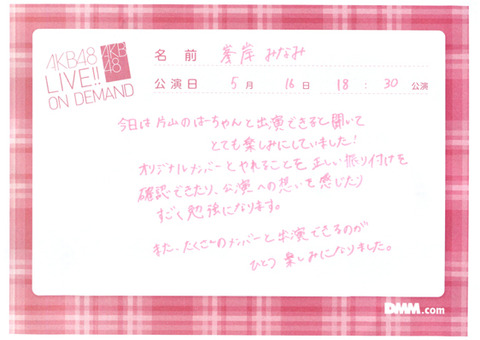 AKB48
LIVE!!
ON DEMAND
AKB
48
名前 峯岸 みなみ
公演日 5月 16日 18:30公演
今日は片山のはーちゃんと出演できると聞いて
とても楽しみにしていました!
オリジナルメンバーとやれることを正しい振り付けを
確認できたり、公演への想いを感じたり
すごく勉強になります。
また、たくさんのメンバーと出演できるのが
ひとつ楽しみになりました。
DMM.com